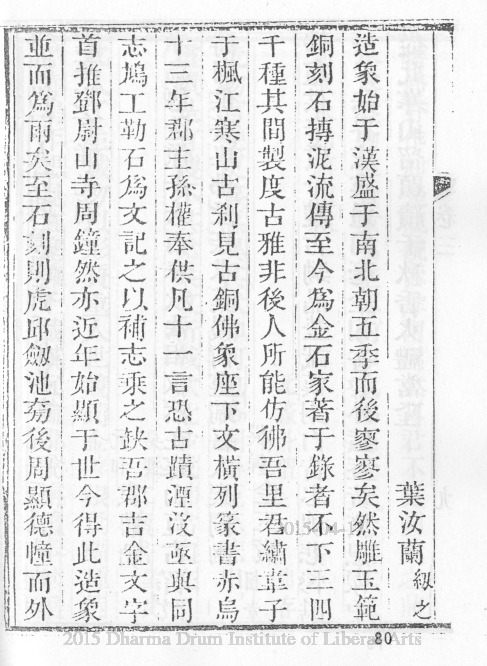 葉汝蘭 紉之
造象始于漢盛于南北朝五季而後寥寥矣然雕玉範
銅刻石摶泥流傳至今為金石家著于錄者不下三四
千種其間製度古雅非後人所能仿彿吾里君繡韋子
于楓江寒山古刹見古銅佛象座下文橫列篆書赤烏
十三年郡主孫權奉供凡十一言恐古蹟湮沒亟與同
志鳩工勒石為文記之以補志乘之缺吾郡吉金文字
首推鄧尉山寺周鐘然亦近年始顯于世今得此造象
並而為兩矣至石刻則虎邱劔池旁後周顯德幢而外
2015-04-
2015 Dharma Drum Institute of Liberal Arts
80